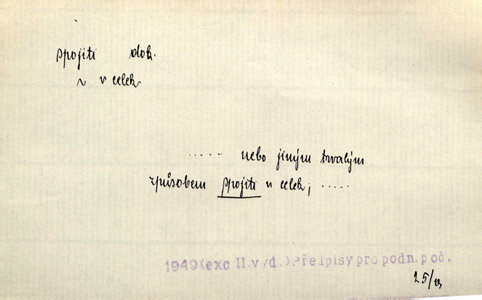 spojiti dok.
~ v celek
..... nebo jiným trvalým
způsobem spojiti v celek; .....
1949(exc II.vyd.)Předpisy pro podn.poč.
25/